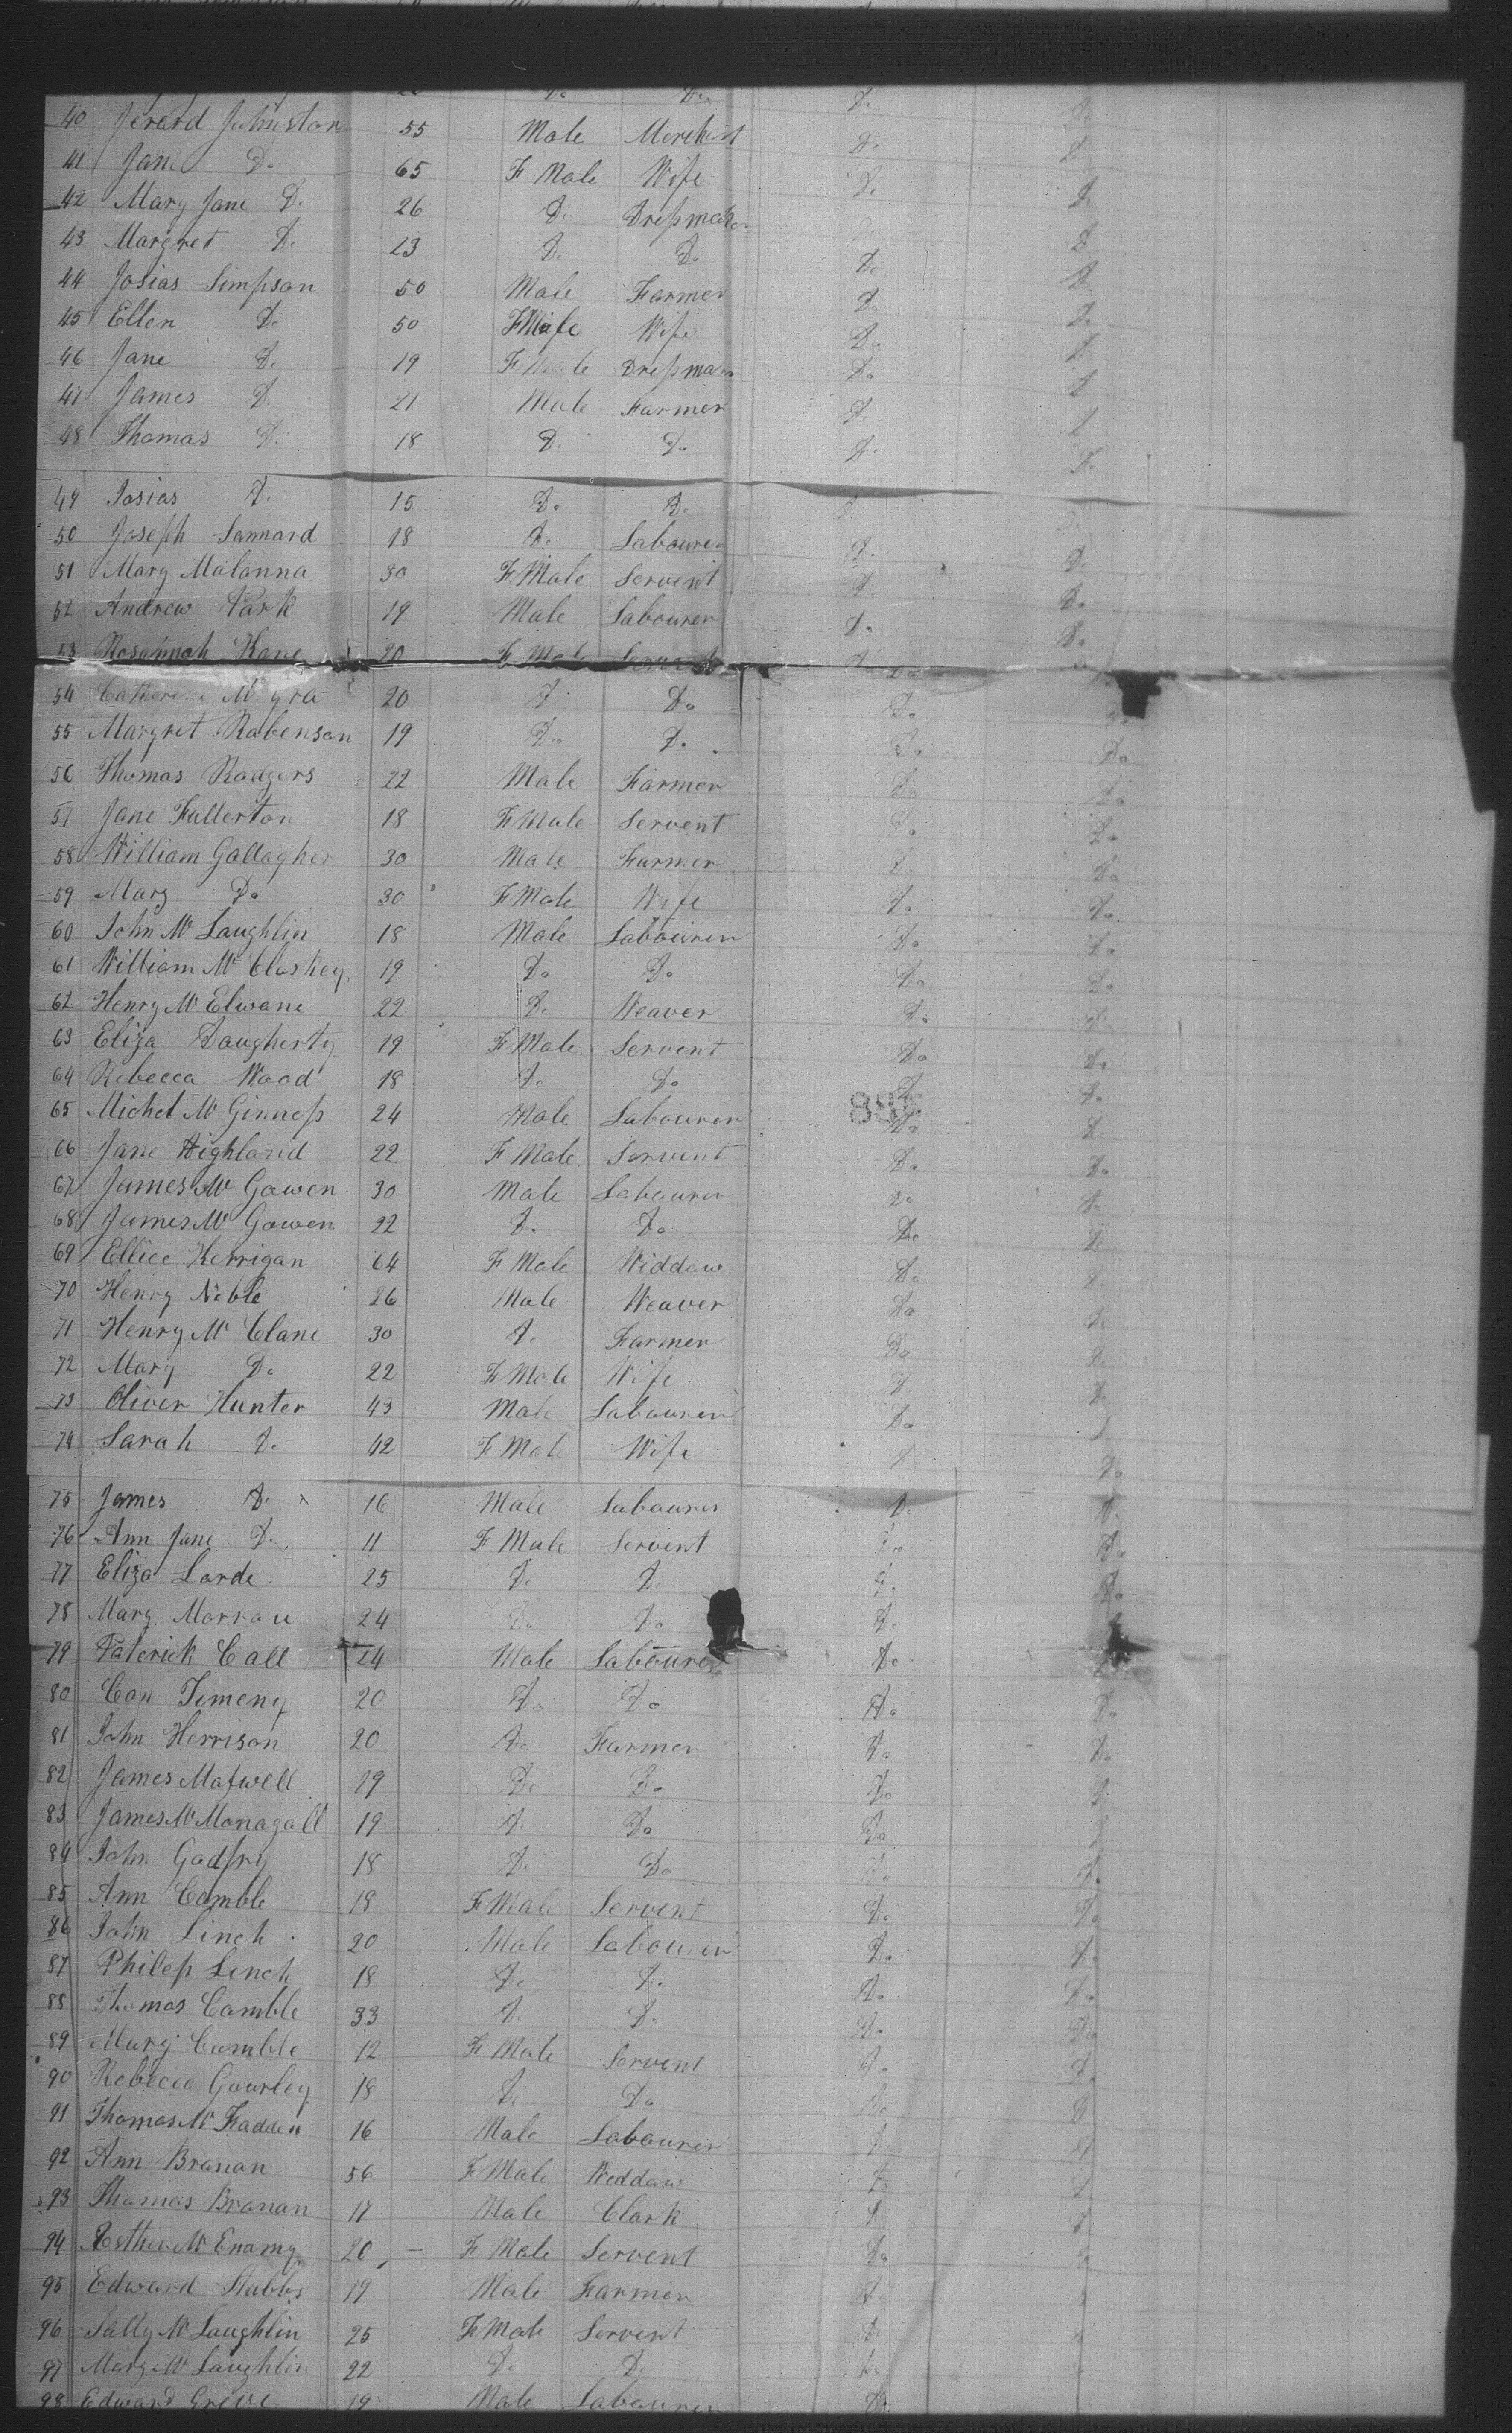 40 Jerard Johnston 55 Male Merchant Do Do
41 Jane Do 65 F Male Wife Do Do
42 Mary Jane Do 26 Do Dressmaker Do Do
43 Margret Do 23 Do Do Do Do
44 Josias Simpson 50 Male Farmer Do Do
45 Ellen Do 50 F Wife Do Do
46 Jane Do 19 F Male Do Do
47 James Do 21 Male Farmer Do Do
48 Thomas Do 18 Do Do Do Do
49 Josias Do 15 Do Do Do Do
50 Joseph 18 Do Labourer Do Do
51 Mary Malanna 30 F Male Servent Do Do
52 Andrew Park 19 Male Labourer Do Do
53 Rosannah Kane 20 F Male Servent Do
54 Catherine 20 Do Do Do Do
55 Margret Robenson 19 Do Do Do Do
56 Thomas Rodgers 22 Male Farmer Do Do
57 Jane Fullerton 18 F Male Servent Do Do
58 William Gallagher 30 Male Farmer Do Do
59 Mary Do 30 F Male Wife Do Do
60 John Mc Laughlin 18 Male Labourer Do Do
61 William Mc Closkey 19 Do Do Do Do
62 Henry Mc Elwane 22 Do Weaver Do Do
63 Eliza Daugherty 19 F Male Servent Do Do
64 Rebecca Wood 18 Do Do Do Do
65 Michel Mc Ginness 24 Male Labourer Do Do
66 Jane Highland 22 F Male Servent Do Do
67 James Mc Gowen 30 Male Labourer Do Do
68 James Mc Gowen 22 Do Do Do Do
69 Ellice Kerrigan 64 F Male Widdow Do Do
70 Henry Noble 26 Male Weaver Do Do
71 Henry Mc Clane 30 Do Farmer Do Do
72 Mary Do 22 F Male Wife Do Do
73 Oliver Hunter 43 Male Labourer Do Do
74 Sarah Do 42 F Male Wife Do Do
75 James Do 16 Male Labourer Do Do
76 Ann Jane Do 11 F Male Servent Do Do
77 Eliza Larde 25 Do Do Do Do
78 Mary Morrow 24 Do Do Do
79 Paterick Call 24 Male Labourer Do
80 Con Timeny 20 Do Do Do Do
81 John Herrison 20 Do Farmer Do Do
82 James Maxwell 19 Do Do Do Do
83 James Mc Monagall 19 Do Do Do Do
84 John Godfry 18 Do Do Do Do
85 Ann Camble 18 F Male Servent Do Do
86 John Linch 20 Male Labourer Do Do
87 Philep Linch 18 Do Do Do Do
88 Thomas Camble 33 Do Do Do Do
89 Mary Camble 12 F Male Servent Do Do
90 Rebecca Gourley 18 Do Do Do Do
91 Thomas Mc Fadden 16 Male Labourer Do Do
92 Ann Branan 56 F Male Weddow Do Do
93 Thomas Branan 17 Male Clark Do Do
94 Esther Mc Enamy 20 F Male Servent Do
95 Edward Stubbs 19 Male Farmer Do
96 Sally Mc Laughlin 25 F Male Servent Do
97 Mary Mc Laughlin 22 Do Do Do
98 Edward Greve 19 Male Labourer Do